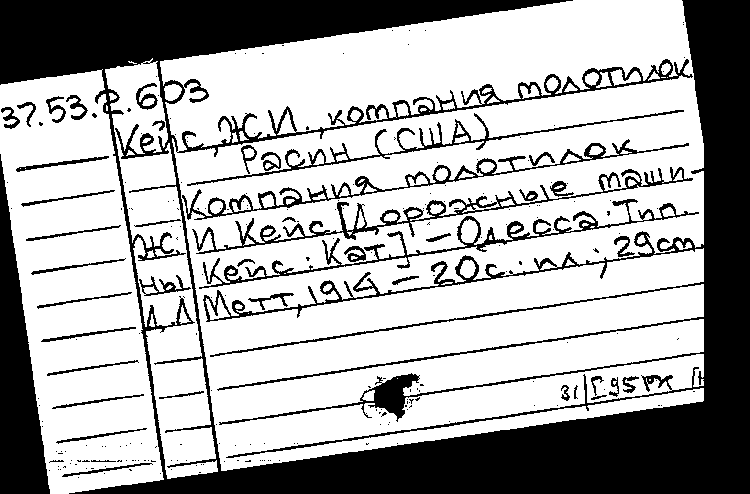 37.53.2.603
Кейс, Ж.И., компания молотилок
Расин (США)
Компания молотилок
Ж. И. Кейс [Дорожные маши-
ны Кейс: Кат.]. — Одесса: Тип.
Д.Л Метт, 1914. — 20с.: ил.; 29см.
31/I 95 РК